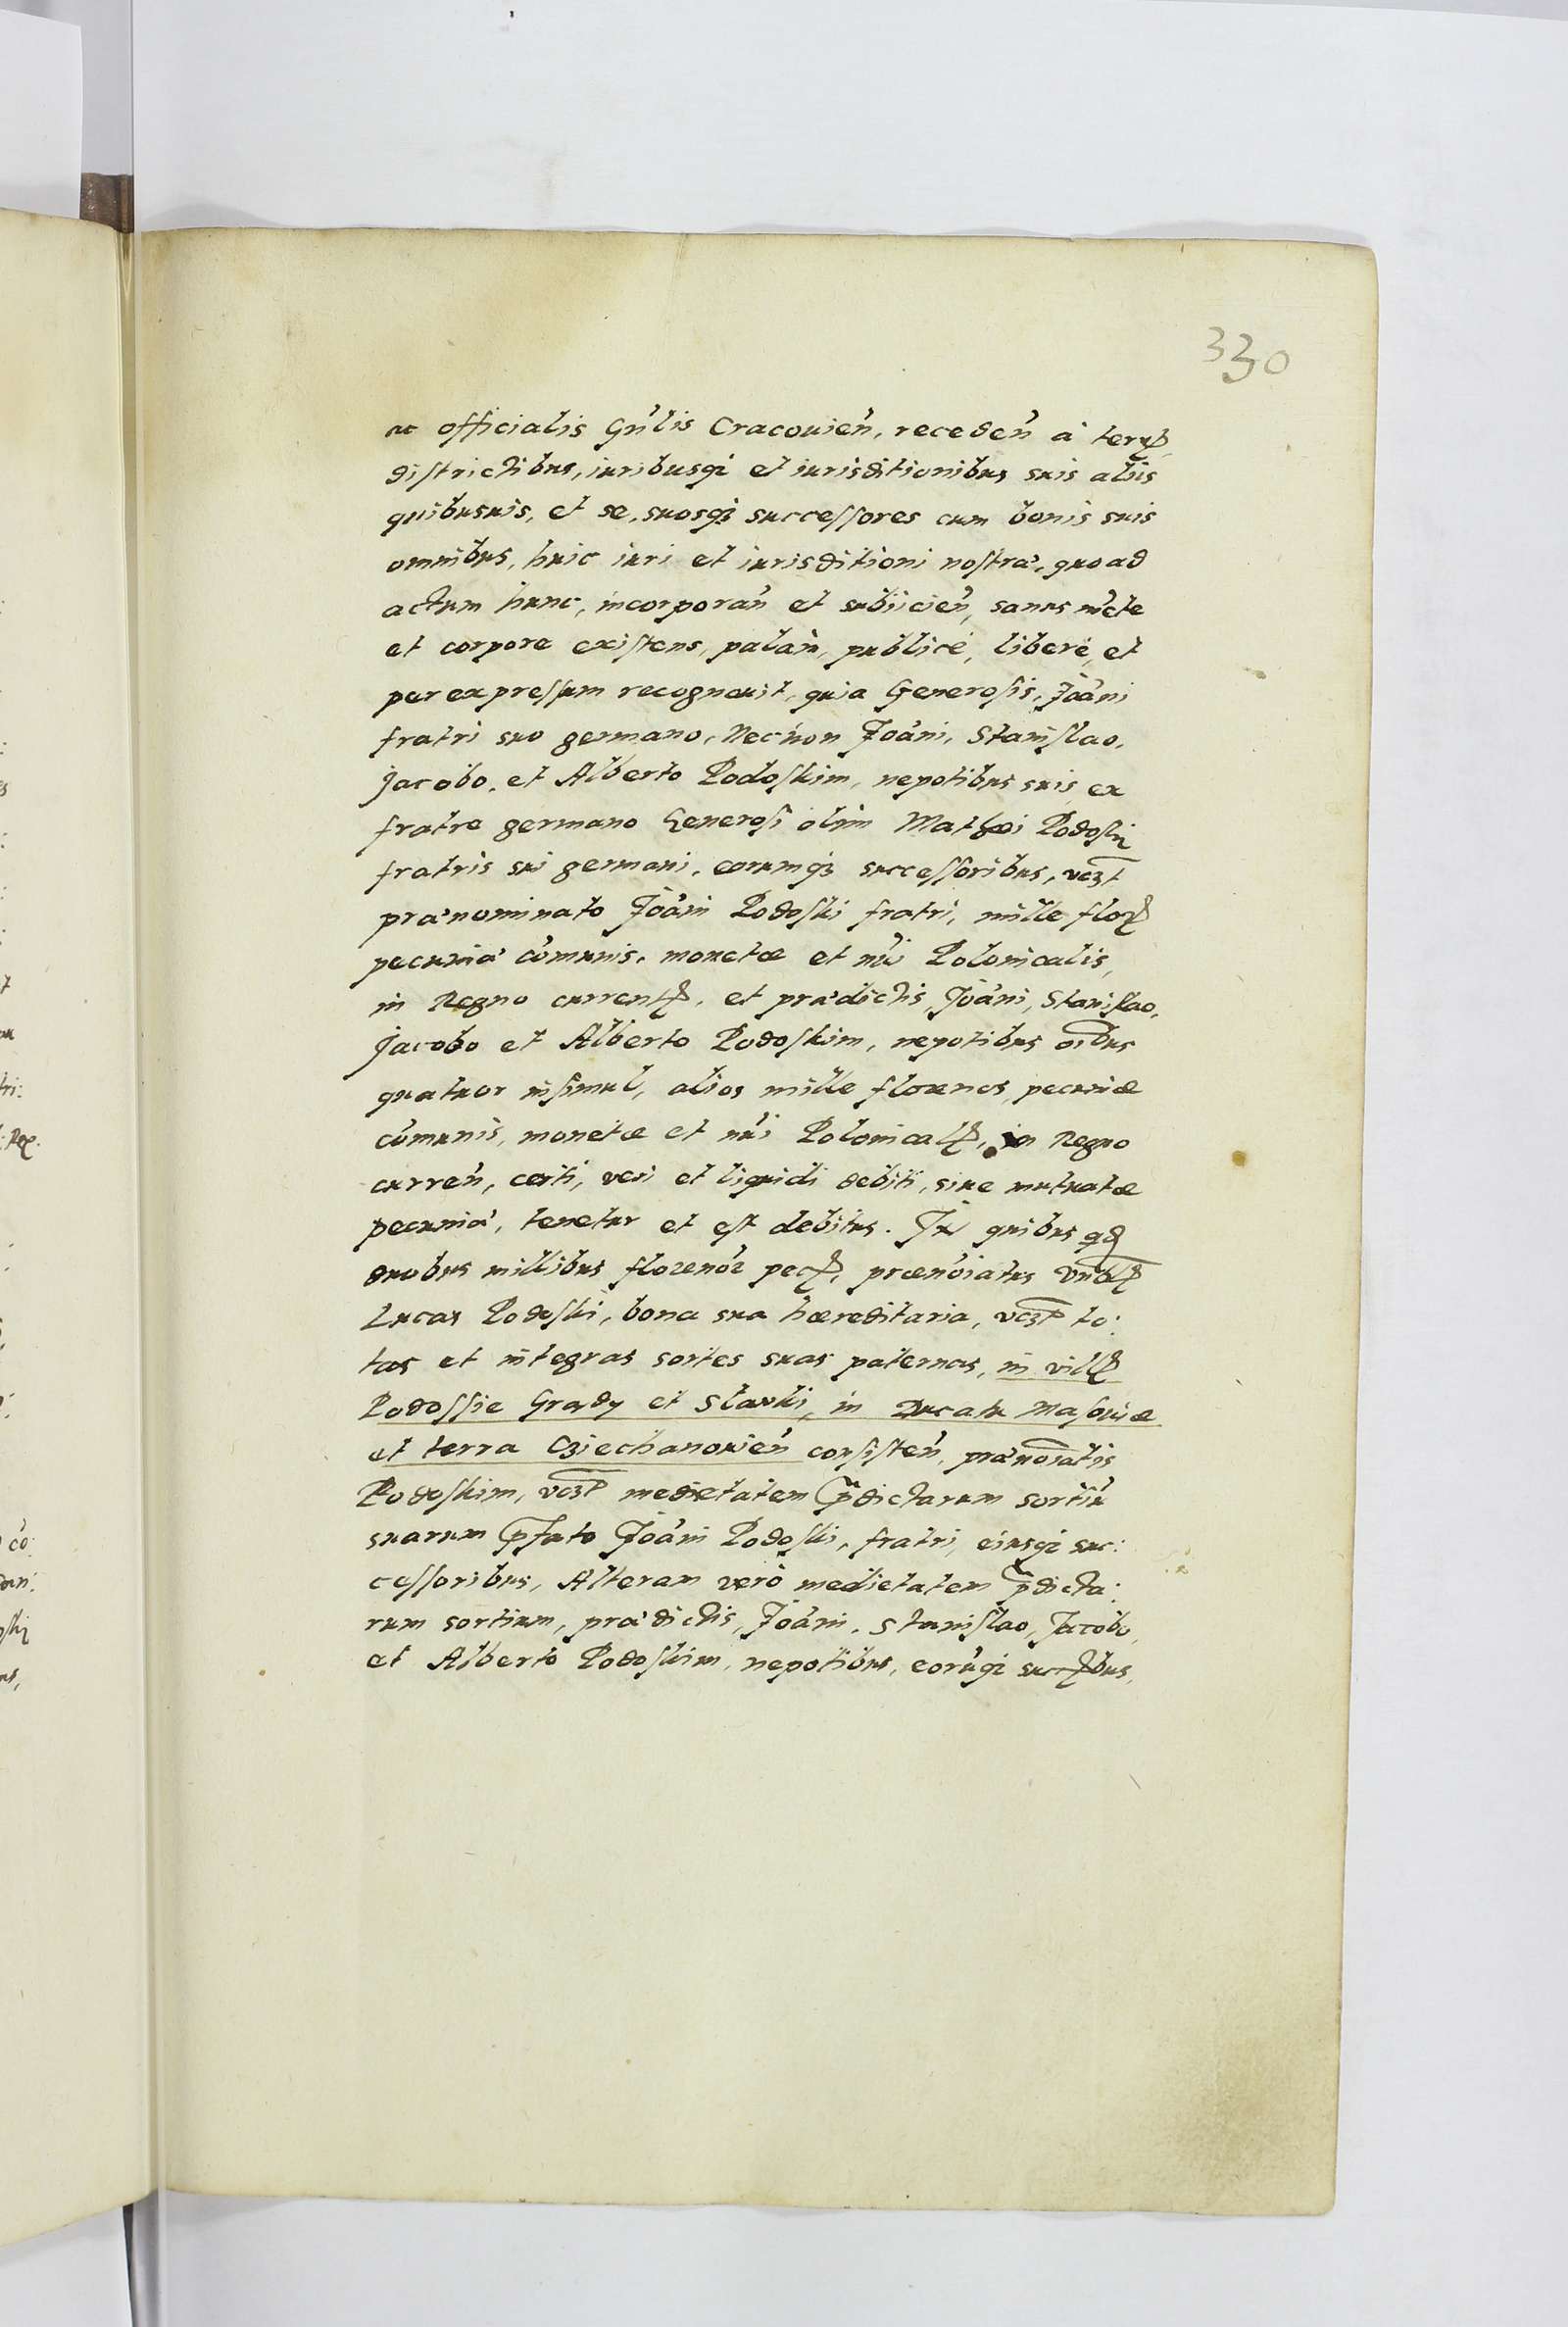 330
ac officialis Gn̄lis Cracouien̄, receden̄ à terrꝭ,
districtibus, iuribusqꝫ et iurisditionibus suis aliis
quibusuis, et se, suosqꝫ successores cum bonis suis
omnibus, huic iuri et iurisditioni nostræ, quoad
actum hunc, incorporan̄ et subiicien̄, sanus mēte
et corpore existens, palàm, publicè, liberè, et
per expressum recognouit, quia Generosis, Joāni
fratri suo germano, Necnon Joāni, Stanislao,
Jacobo, et Alberto Podoskim, nepotibus suis, ex
fratre germano Generosi olim Mathæi Podoskj
fratris sui germani, eorumqꝫ successoribus, vcꝫt
prænominato Joāni Podoski fratri, mille florꝭ
pecuniæ cōmunis, monetæ et nūi Polonicalis,
in Regno currentꝭ, et prædictis, Joāni, Stanislao,
Jacobo et Alberto Podoskim, nepotibus oībus
quatuor insimul, alios mille florenos, pecuniæ
cōmunis, monetæ et nūi Polonicalꝭ, in Regno
curren̄, certi, veri et liquidi debiti, siue mutuatæ
pecuniæ, tenetur et est debitus. In quibus qd
duobus millibus florenoꝝ pecꝭ, prænoīatus
Lucas Podoski, bona sua hæreditaria, vcꝫt to:
tas et integras sortes suas paternas, in villꝭ
Podossie Grady et Slawki, in Ducatu Masouiæ
et terra Cziechanouien̄ consisten̄, prænoīatis
Podoskim, vcꝫt medietatem p̄dictarum sortiū
suarum p̄fato Joāni Podoski, fratri, eiusqꝫ suc:
cessoribus, Alteram verò medietatem p̄dicta:
rum sortium, prædictis, Joāni, Stanislao, Jacobo,
et Alberto Podoskim, nepotibus, eorūqꝫ succꝭbus,